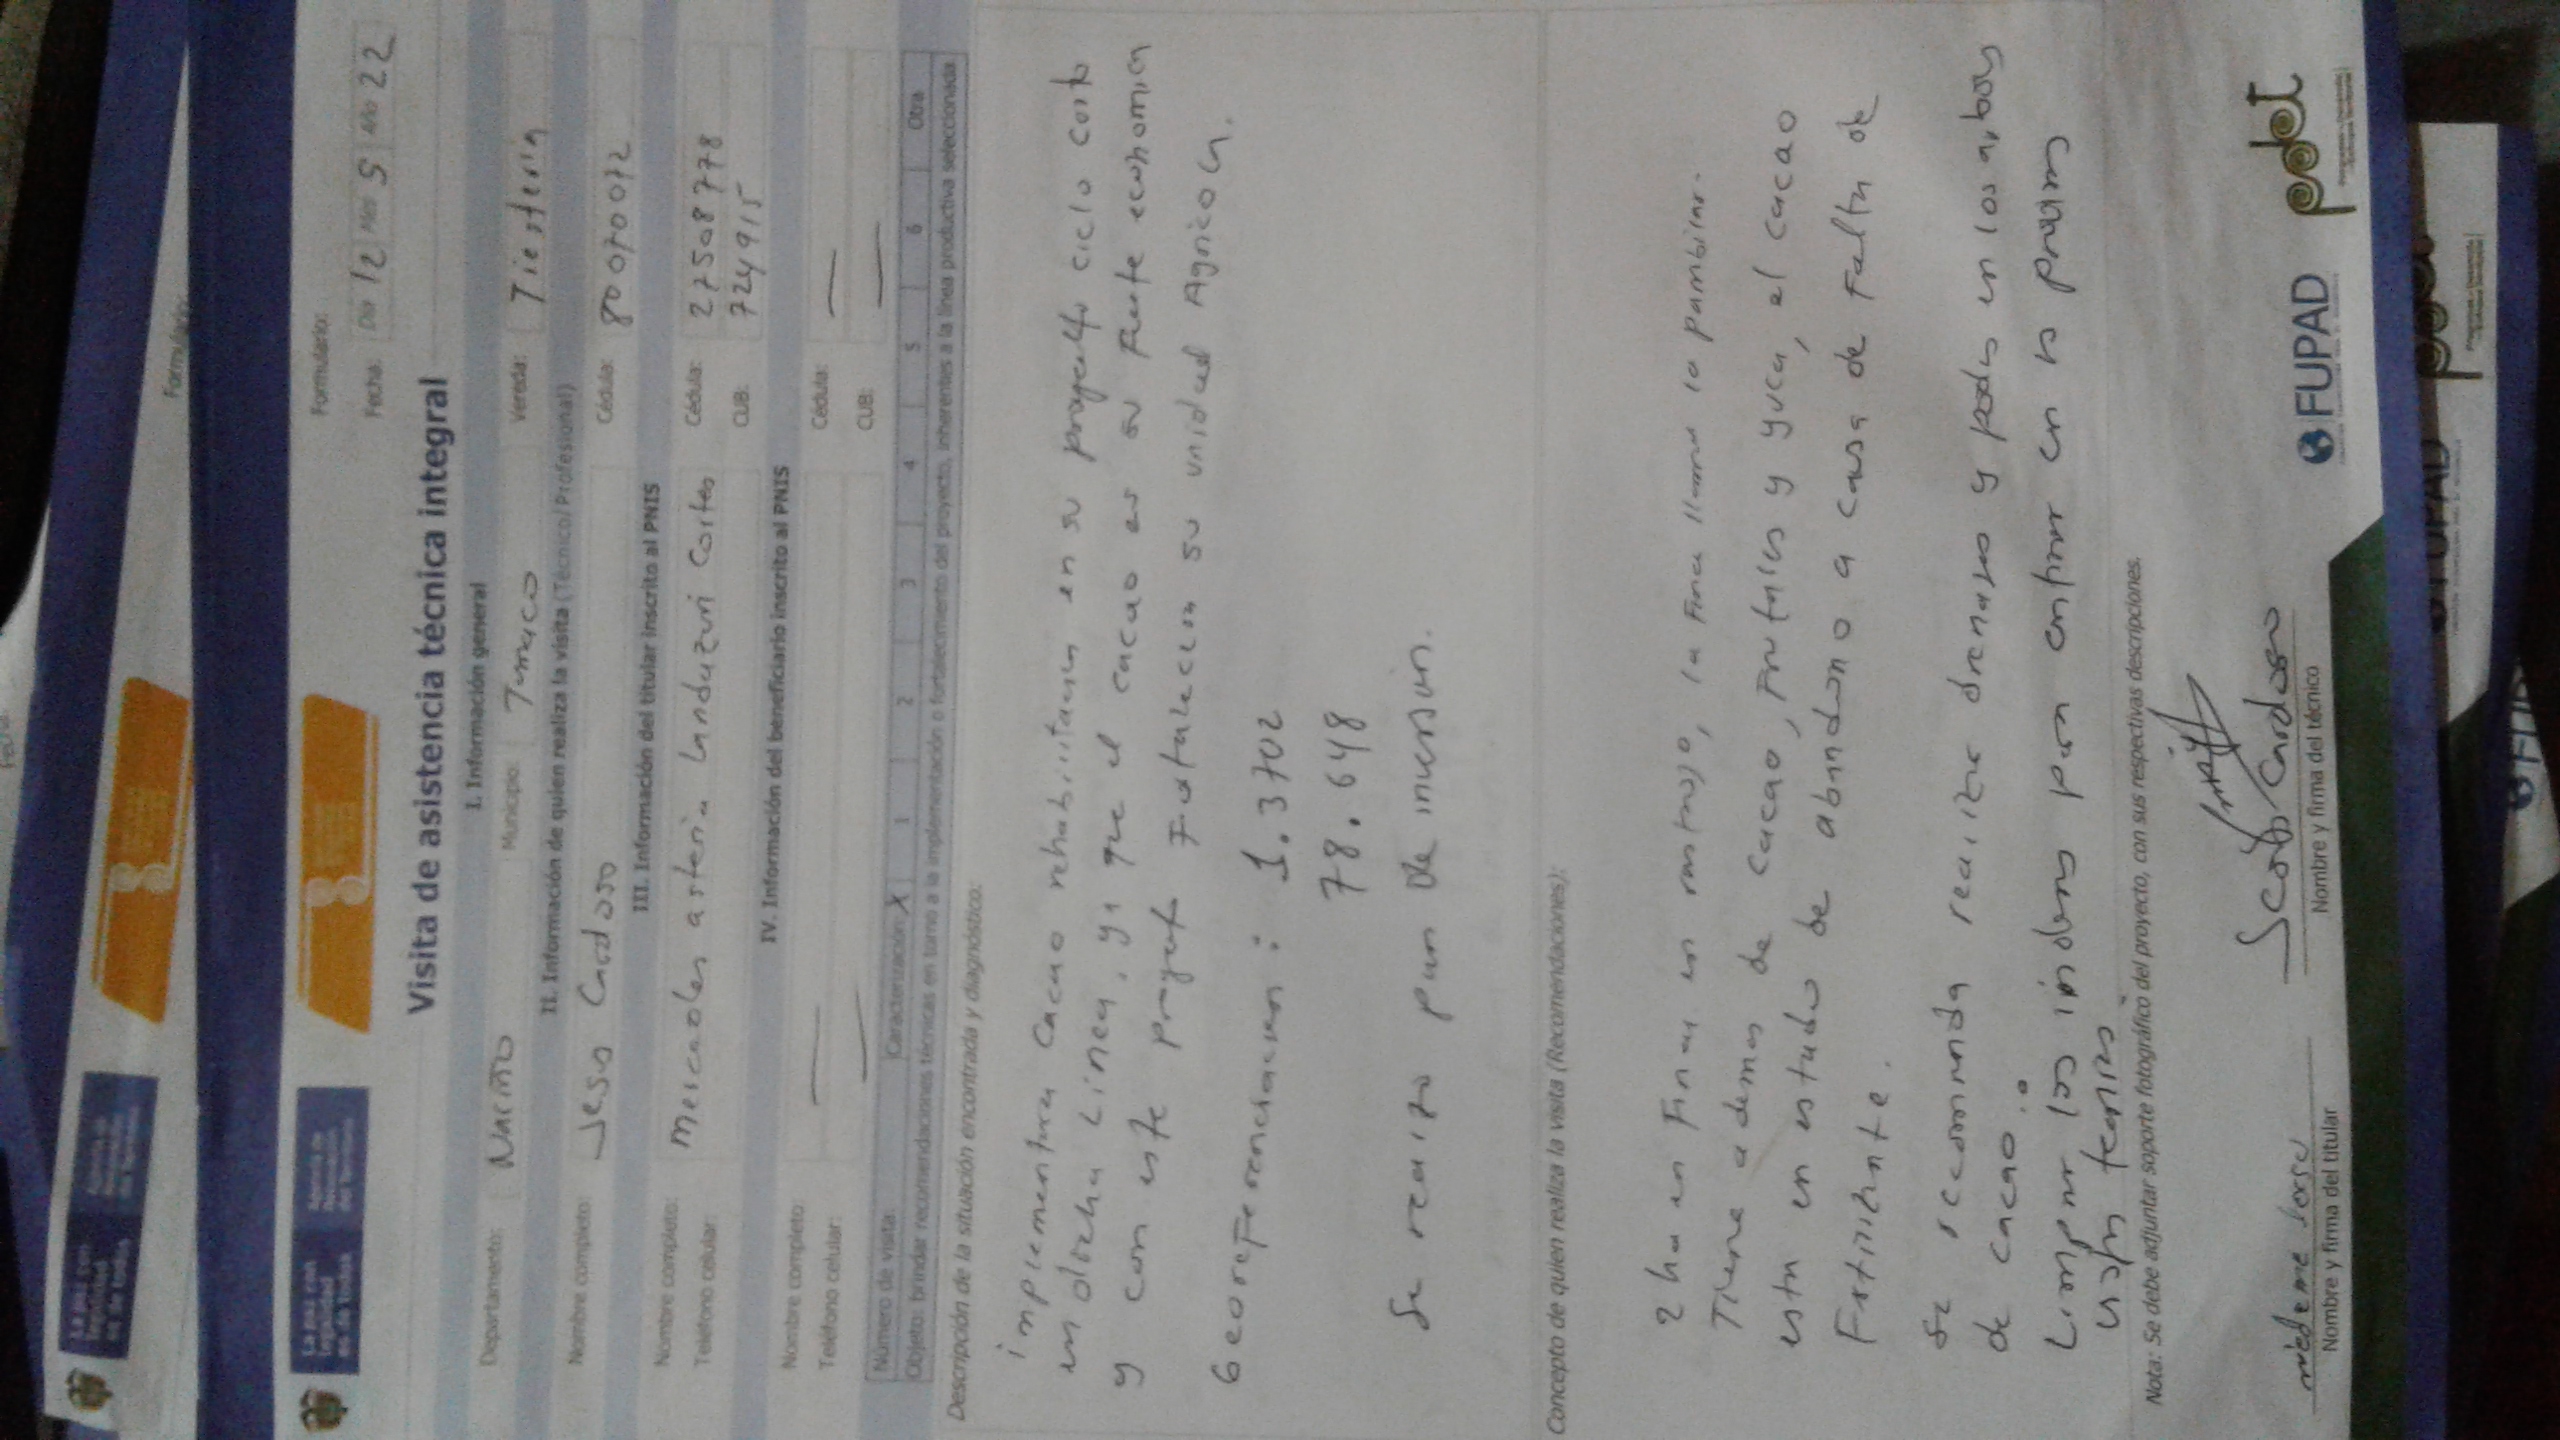 La paz con
legalidad
es de todos
Agencia de
Renovación
del Territorio
Formulario:
Fecha: Día 12 Mes 5 Año 22
Visita de asistencia técnica integral
I. Información general
Departamento: Nariño Municipio: Tumaco Vereda: Tiestería
II. Información de quien realiza la visita (Técnico/ Profesional)
Nombre completo: Jesus Cardoso Cédula: 80070072
III. Información del titular inscrito al PNIS
Nombre completo: asteria Landazuri Cortes Cédula: 27508778
Teléfono celular: CUB: 724915
IV. Información del beneficiario inscrito al PNIS
Nombre completo: — Cédula: —
Teléfono celular: — CUB: —
Número de visita: Caracterización X 1 2 3 4 5 6 Otra
Objeto: brindar recomendaciones técnicas en torno a la implementación o fortalecimiento del proyecto, inherentes a la línea productiva seleccionada
Descripción de la situación encontrada y diagnóstico:
implementara cacao rehabilitacion en su proyecto ciclo corto
en dicha Linea, ya que el cacao es su fuente economica
y con este proyecto Fortalecera su unidad Agricola.
Georeferenciacion: 1.3702
78.648
Se realizo plan de inversion.
Concepto de quien realiza la visita (Recomendaciones):
2 ha en Finca en rastrojo, la Finca llamada la pambilar.
Tiene ademas de cacao, frutales y yuca, el cacao
esta en estado de abandono a causa de Falta de
Fertilizante.
Se recomienda realizar drenajes y podas en los arboles
de cacao.
Limpiar los linderos para entrar en la proxima
visita tecnica
Nota: Se debe adjuntar soporte fotográfico del proyecto, con sus respectivas descripciones.
Cardoso
Nombre y firma del titular
Nombre y firma del técnico
FUPAD
pdet